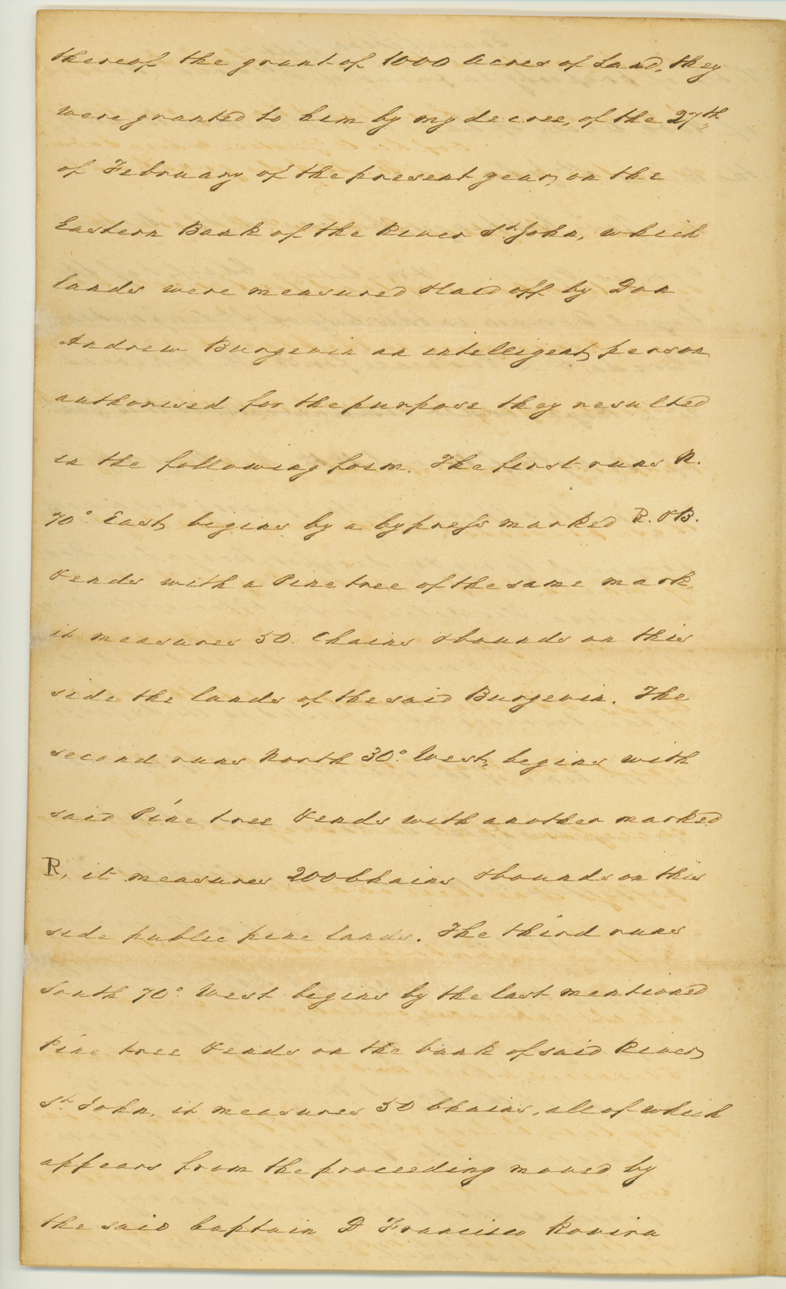 thereof the grant of 1000 Acres of Land, they
were granted to him by my decree, of the 27th
of February of the present year, on the
Eastern Bank of the River St John, which
lands were measured & laid off by Don
Andrew Burgevin an intelligent person
authorised for the purpose they resulted
in the following form. The first runs N.
70° East, begins by a Cypress marked R. & B.
& ends with a Pine tree of the same mark,
it measures 50 Chains & bounds on this
side the lands of the said Burgevin. The
second runs North 30° West, begins with
said Pine tree & ends with another marked
R, it measures 200 Chains & bounds on this
side public pine lands. The third runs
South 70° West begins by the last mentioned
Pine tree & ends on the bank of said River
St. John, it measures 50 Chains, all of which
appears from the proceeding moved by
the said Captain D Francisco Rovira